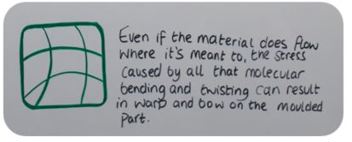 Even if the material does flow
where it's meant to, the stress
caused by all that molecular
bending and twisting can result
in warp and bow on the moulded
part.